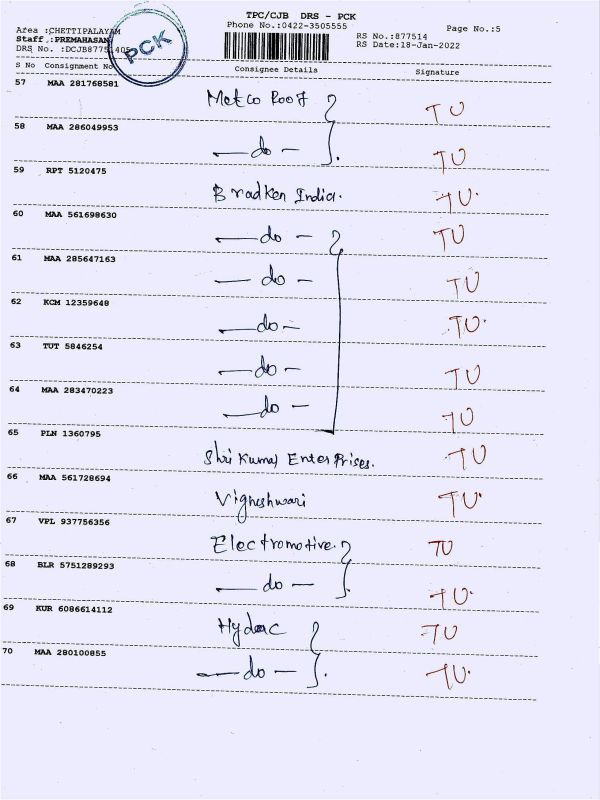 TPC/CJB DRS - PCK
Phone No.:0422-3505555
Page No.:5
Area :CHETTIPALAYAM
Staff :PREMAHASAN
DRS No. :DCJB87751405
PCK
RS No.:877514
RS Date:18-Jan-2022
S No Consignment No Consignee Details Signature
57 MAA 281768581 Metco Roof TU
58 MAA 286049953 do TU
59 RPT 5120475 Bradken India. TU.
60 MAA 561698630 do TU
61 MAA 285647163 do TU
62 KCM 12359648 do TU.
63 TUT 5846254 do TU
64 MAA 283470223 do TU
65 PLN 1360795 Shri Kumar Enterprises. TU
66 MAA 561728694 Vigneshwari TU.
67 VPL 937756356 Electromotive. TU
68 BLR 5751289293 do TU.
69 KUR 6086614112 Hydac TU
70 MAA 280100855 do TU.